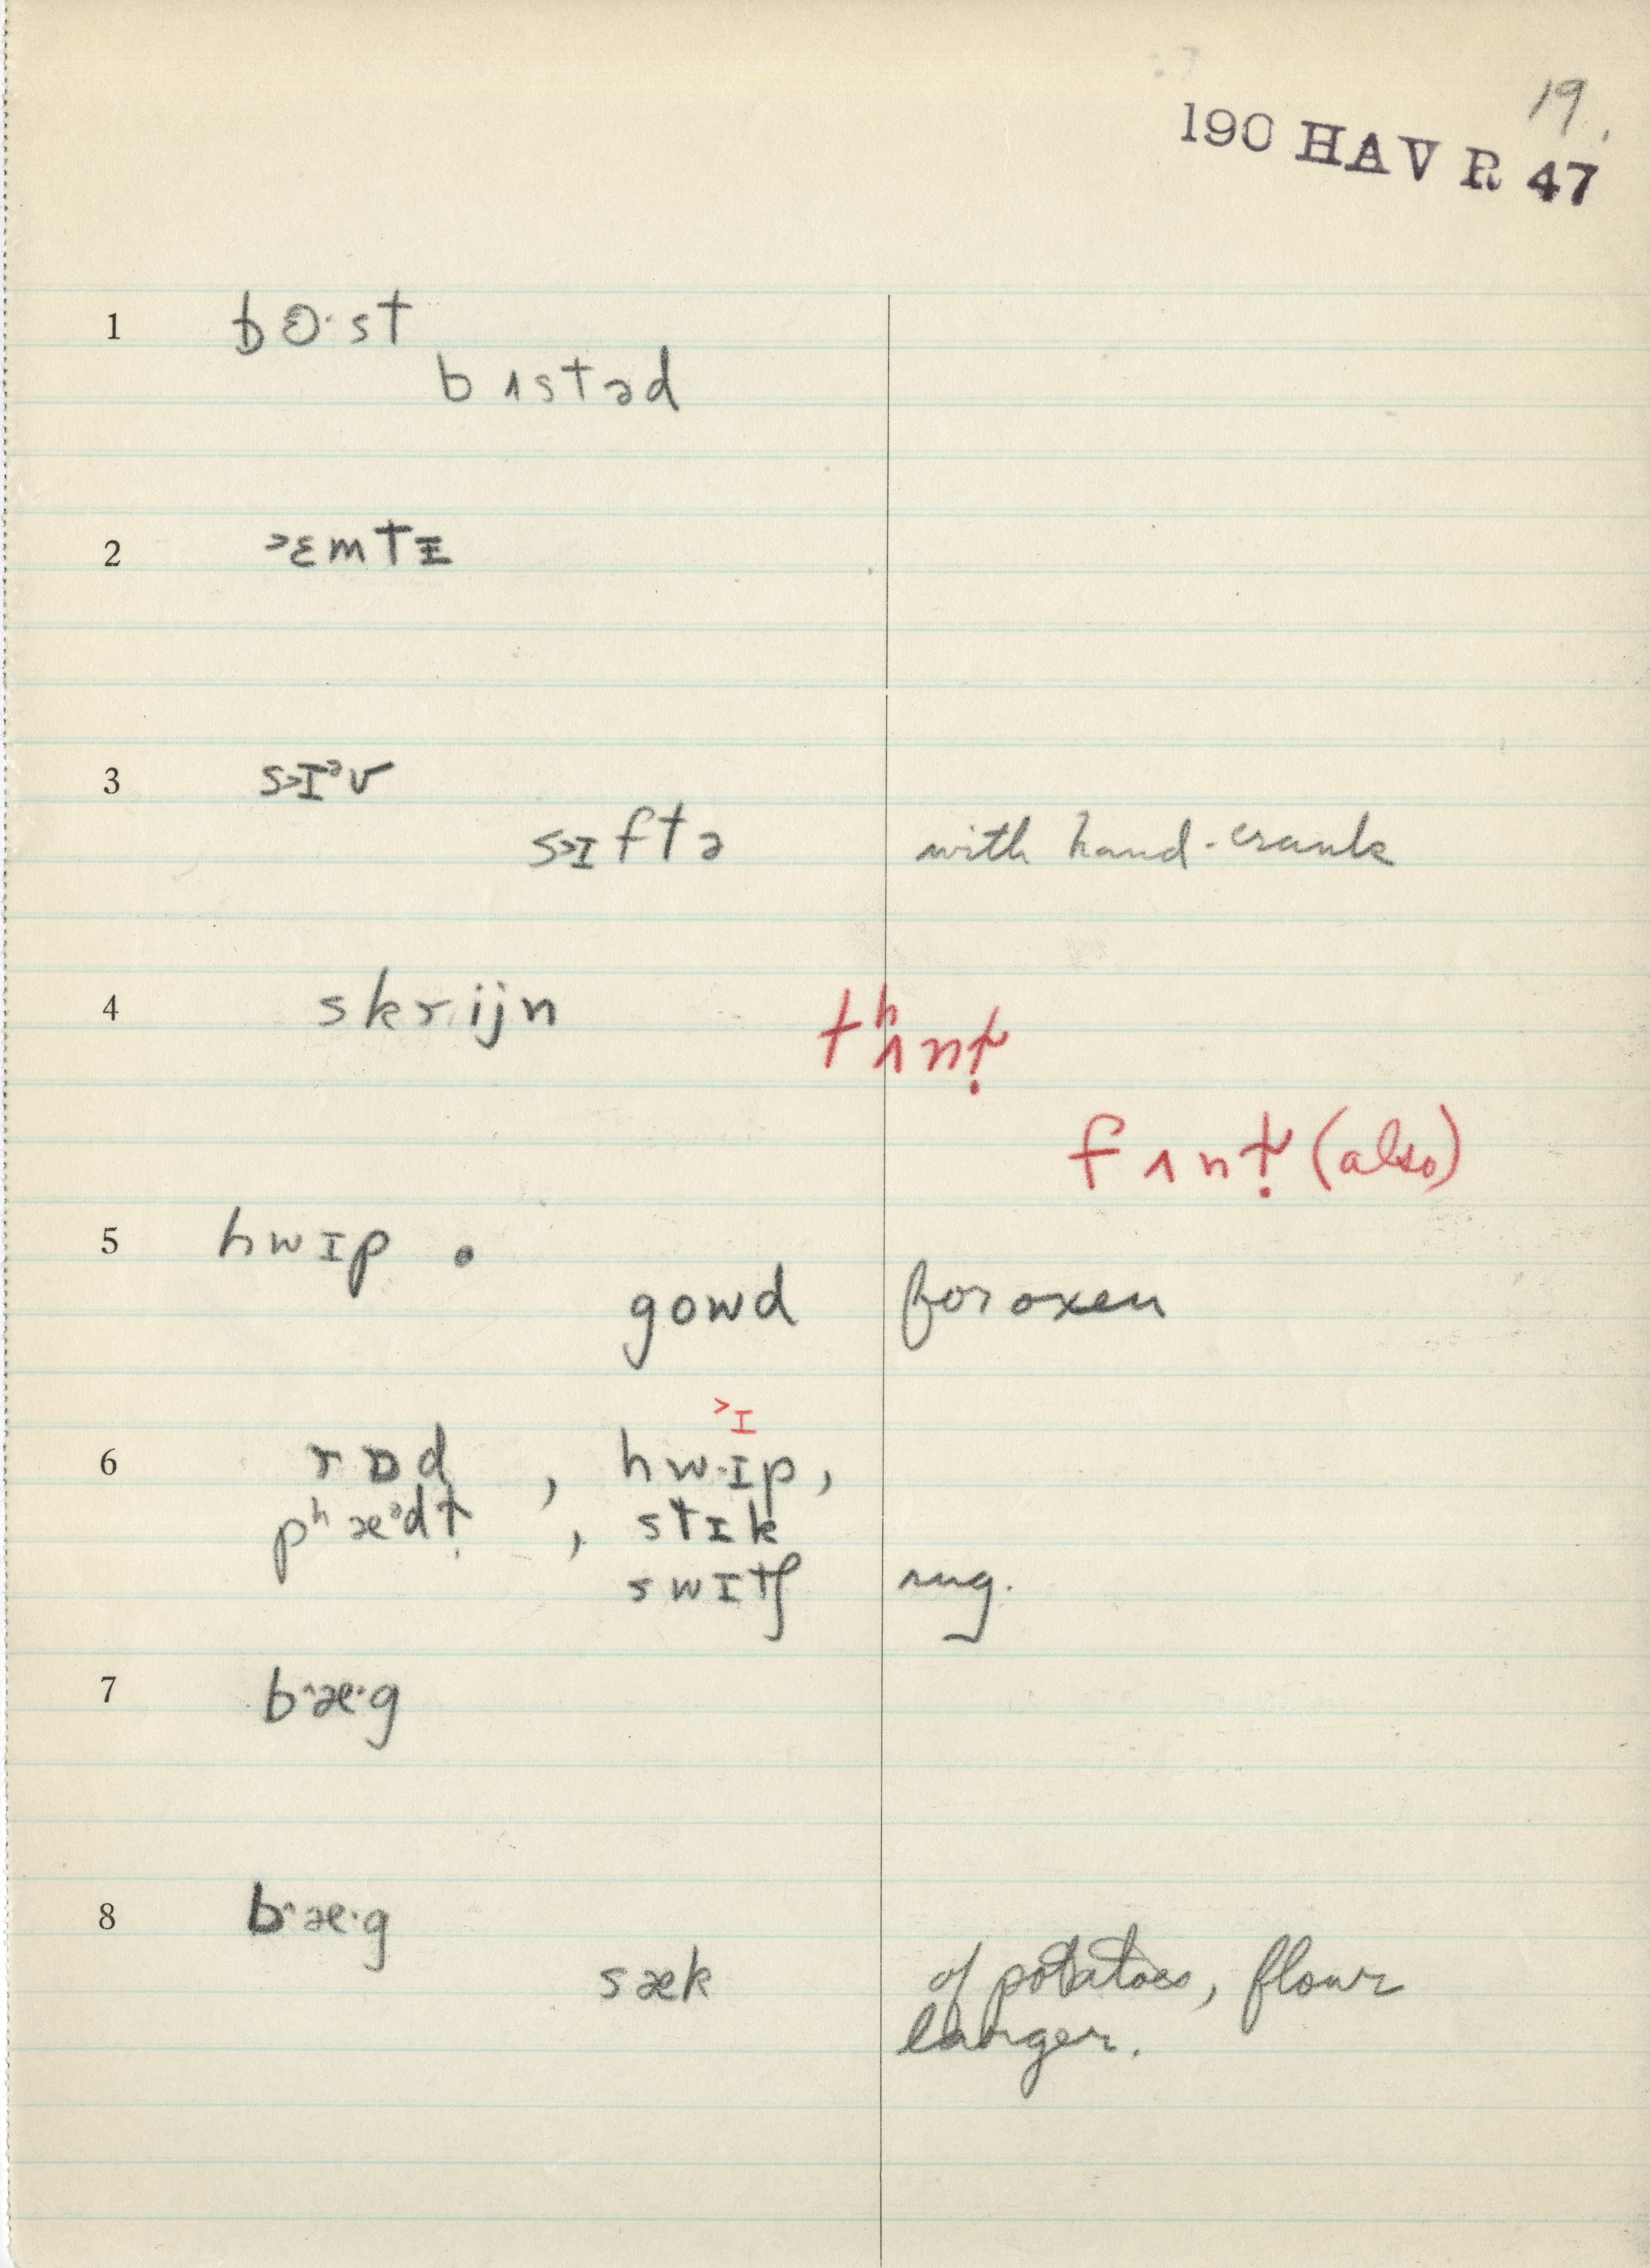 19.
190 HAV R 47
1 bɵ·st
bʌstəd
2 ˃ɛmtɪ̵
3 s˃ɪᵊv
s˃ɪftə with hand-crank
4 skrijn tʰʌnt̬̣
fʌnt̬̣ (also)
5 hwɪp •
gowd for oxen
˃ɪ
6 rɒd, hw·ɪp,
pʰæᵊdt̬, stɪk
swɪtʃ sug.
7 b^æ·g
8 b^æ·g
sæk of potatoes, flour
larger.